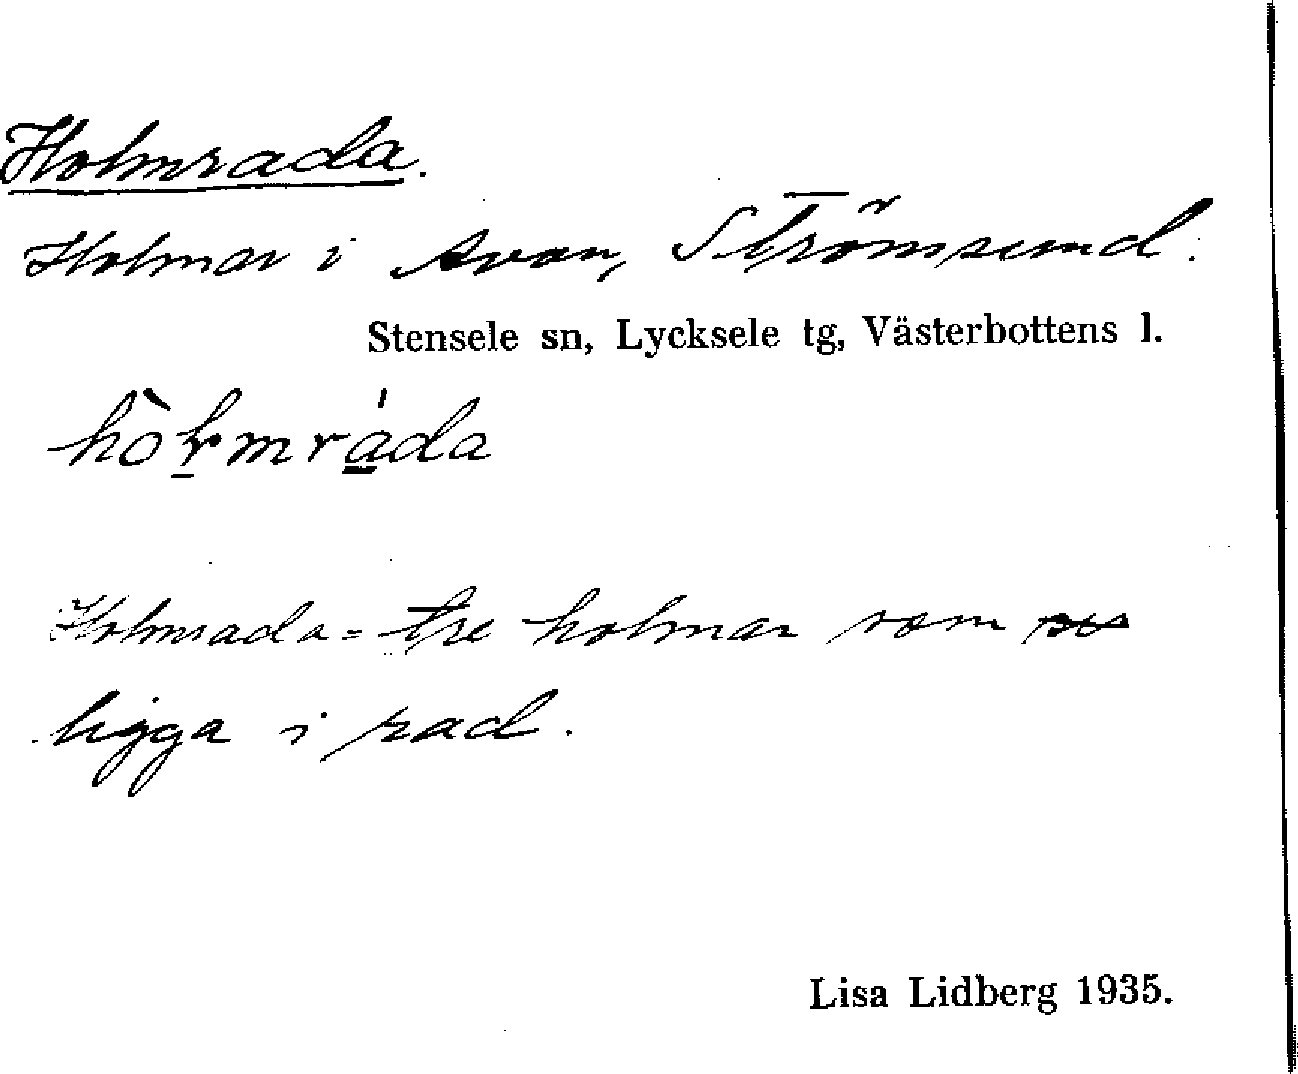 Holmrada.
Holmar i Avan, Strömsund.
Stensele sn, Lycksele tg, Västerbottens l.
Holmrada = tre holmar som
ligga i rad.
Lisa Lidberg 1935.